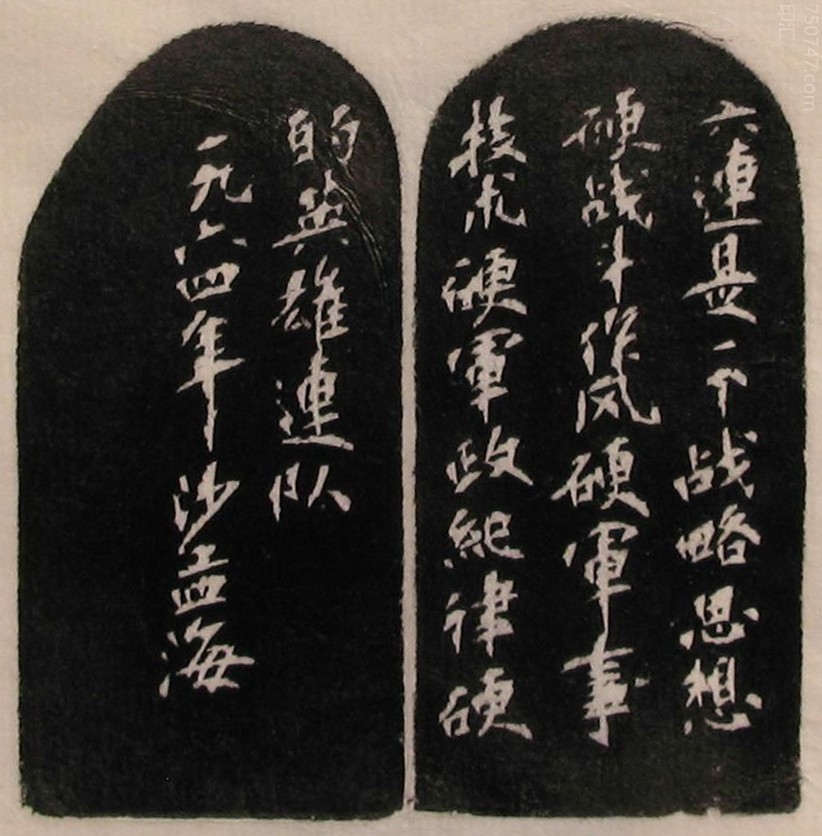 六連是一个战略思想
硬战斗作风硬軍事
技术硬軍政紀律硬
的英雄連队
一九六四年 沙孟海
750747.com
印汇